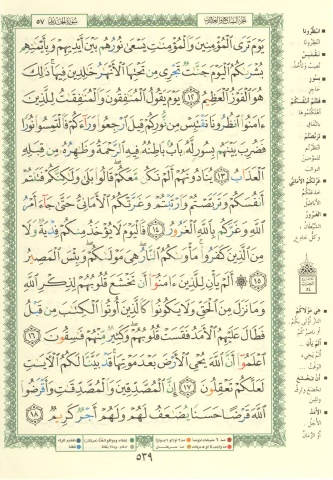 سورة الحديد ٥٧
الجزء السابع والعشرون
يَوْمَ تَرَى ٱلْمُؤْمِنِينَ وَٱلْمُؤْمِنَٰتِ يَسْعَىٰ نُورُهُم بَيْنَ أَيْدِيهِمْ وَبِأَيْمَٰنِهِم
بُشْرَىٰكُمُ ٱلْيَوْمَ جَنَّٰتٌ تَجْرِى مِن تَحْتِهَا ٱلْأَنْهَٰرُ خَٰلِدِينَ فِيهَا ذَٰلِكَ
هُوَ ٱلْفَوْزُ ٱلْعَظِيمُ ١٢ يَوْمَ يَقُولُ ٱلْمُنَٰفِقُونَ وَٱلْمُنَٰفِقَٰتُ لِلَّذِينَ
ءَامَنُوا۟ ٱنظُرُونَا نَقْتَبِسْ مِن نُّورِكُمْ قِيلَ ٱرْجِعُوا۟ وَرَآءَكُمْ فَٱلْتَمِسُوا۟ نُورًا
فَضُرِبَ بَيْنَهُم بِسُورٍ لَّهُۥ بَابٌۢ بَاطِنُهُۥ فِيهِ ٱلرَّحْمَةُ وَظَٰهِرُهُۥ مِن قِبَلِهِ
ٱلْعَذَابُ ١٣ يُنَادُونَهُمْ أَلَمْ نَكُن مَّعَكُمْ قَالُوا۟ بَلَىٰ وَلَٰكِنَّكُمْ فَتَنتُمْ
أَنفُسَكُمْ وَتَرَبَّصْتُمْ وَٱرْتَبْتُمْ وَغَرَّتْكُمُ ٱلْأَمَانِىُّ حَتَّىٰ جَآءَ أَمْرُ
ٱللَّهِ وَغَرَّكُم بِٱللَّهِ ٱلْغَرُورُ ١٤ فَٱلْيَوْمَ لَا يُؤْخَذُ مِنكُمْ فِدْيَةٌ وَلَا
مِنَ ٱلَّذِينَ كَفَرُوا۟ مَأْوَىٰكُمُ ٱلنَّارُ هِىَ مَوْلَىٰكُمْ وَبِئْسَ ٱلْمَصِيرُ
١٥ أَلَمْ يَأْنِ لِلَّذِينَ ءَامَنُوٓا۟ أَن تَخْشَعَ قُلُوبُهُمْ لِذِكْرِ ٱللَّهِ
وَمَا نَزَلَ مِنَ ٱلْحَقِّ وَلَا يَكُونُوا۟ كَٱلَّذِينَ أُوتُوا۟ ٱلْكِتَٰبَ مِن قَبْلُ
فَطَالَ عَلَيْهِمُ ٱلْأَمَدُ فَقَسَتْ قُلُوبُهُمْ وَكَثِيرٌ مِّنْهُمْ فَٰسِقُونَ ١٦
ٱعْلَمُوٓا۟ أَنَّ ٱللَّهَ يُحْىِ ٱلْأَرْضَ بَعْدَ مَوْتِهَا قَدْ بَيَّنَّا لَكُمُ ٱلْءَايَٰتِ
لَعَلَّكُمْ تَعْقِلُونَ ١٧ إِنَّ ٱلْمُصَّدِّقِينَ وَٱلْمُصَّدِّقَٰتِ وَأَقْرَضُوا۟
ٱللَّهَ قَرْضًا حَسَنًا يُضَٰعَفُ لَهُمْ وَلَهُمْ أَجْرٌ كَرِيمٌ ١٨
٥٣٩
انظرونا
نقتبس
بسور
فتنتم أنفسكم
تربصتم
غرتكم الأماني
الغرور
هي مولاكم
ألم يأن
أن تخشع
الأمد